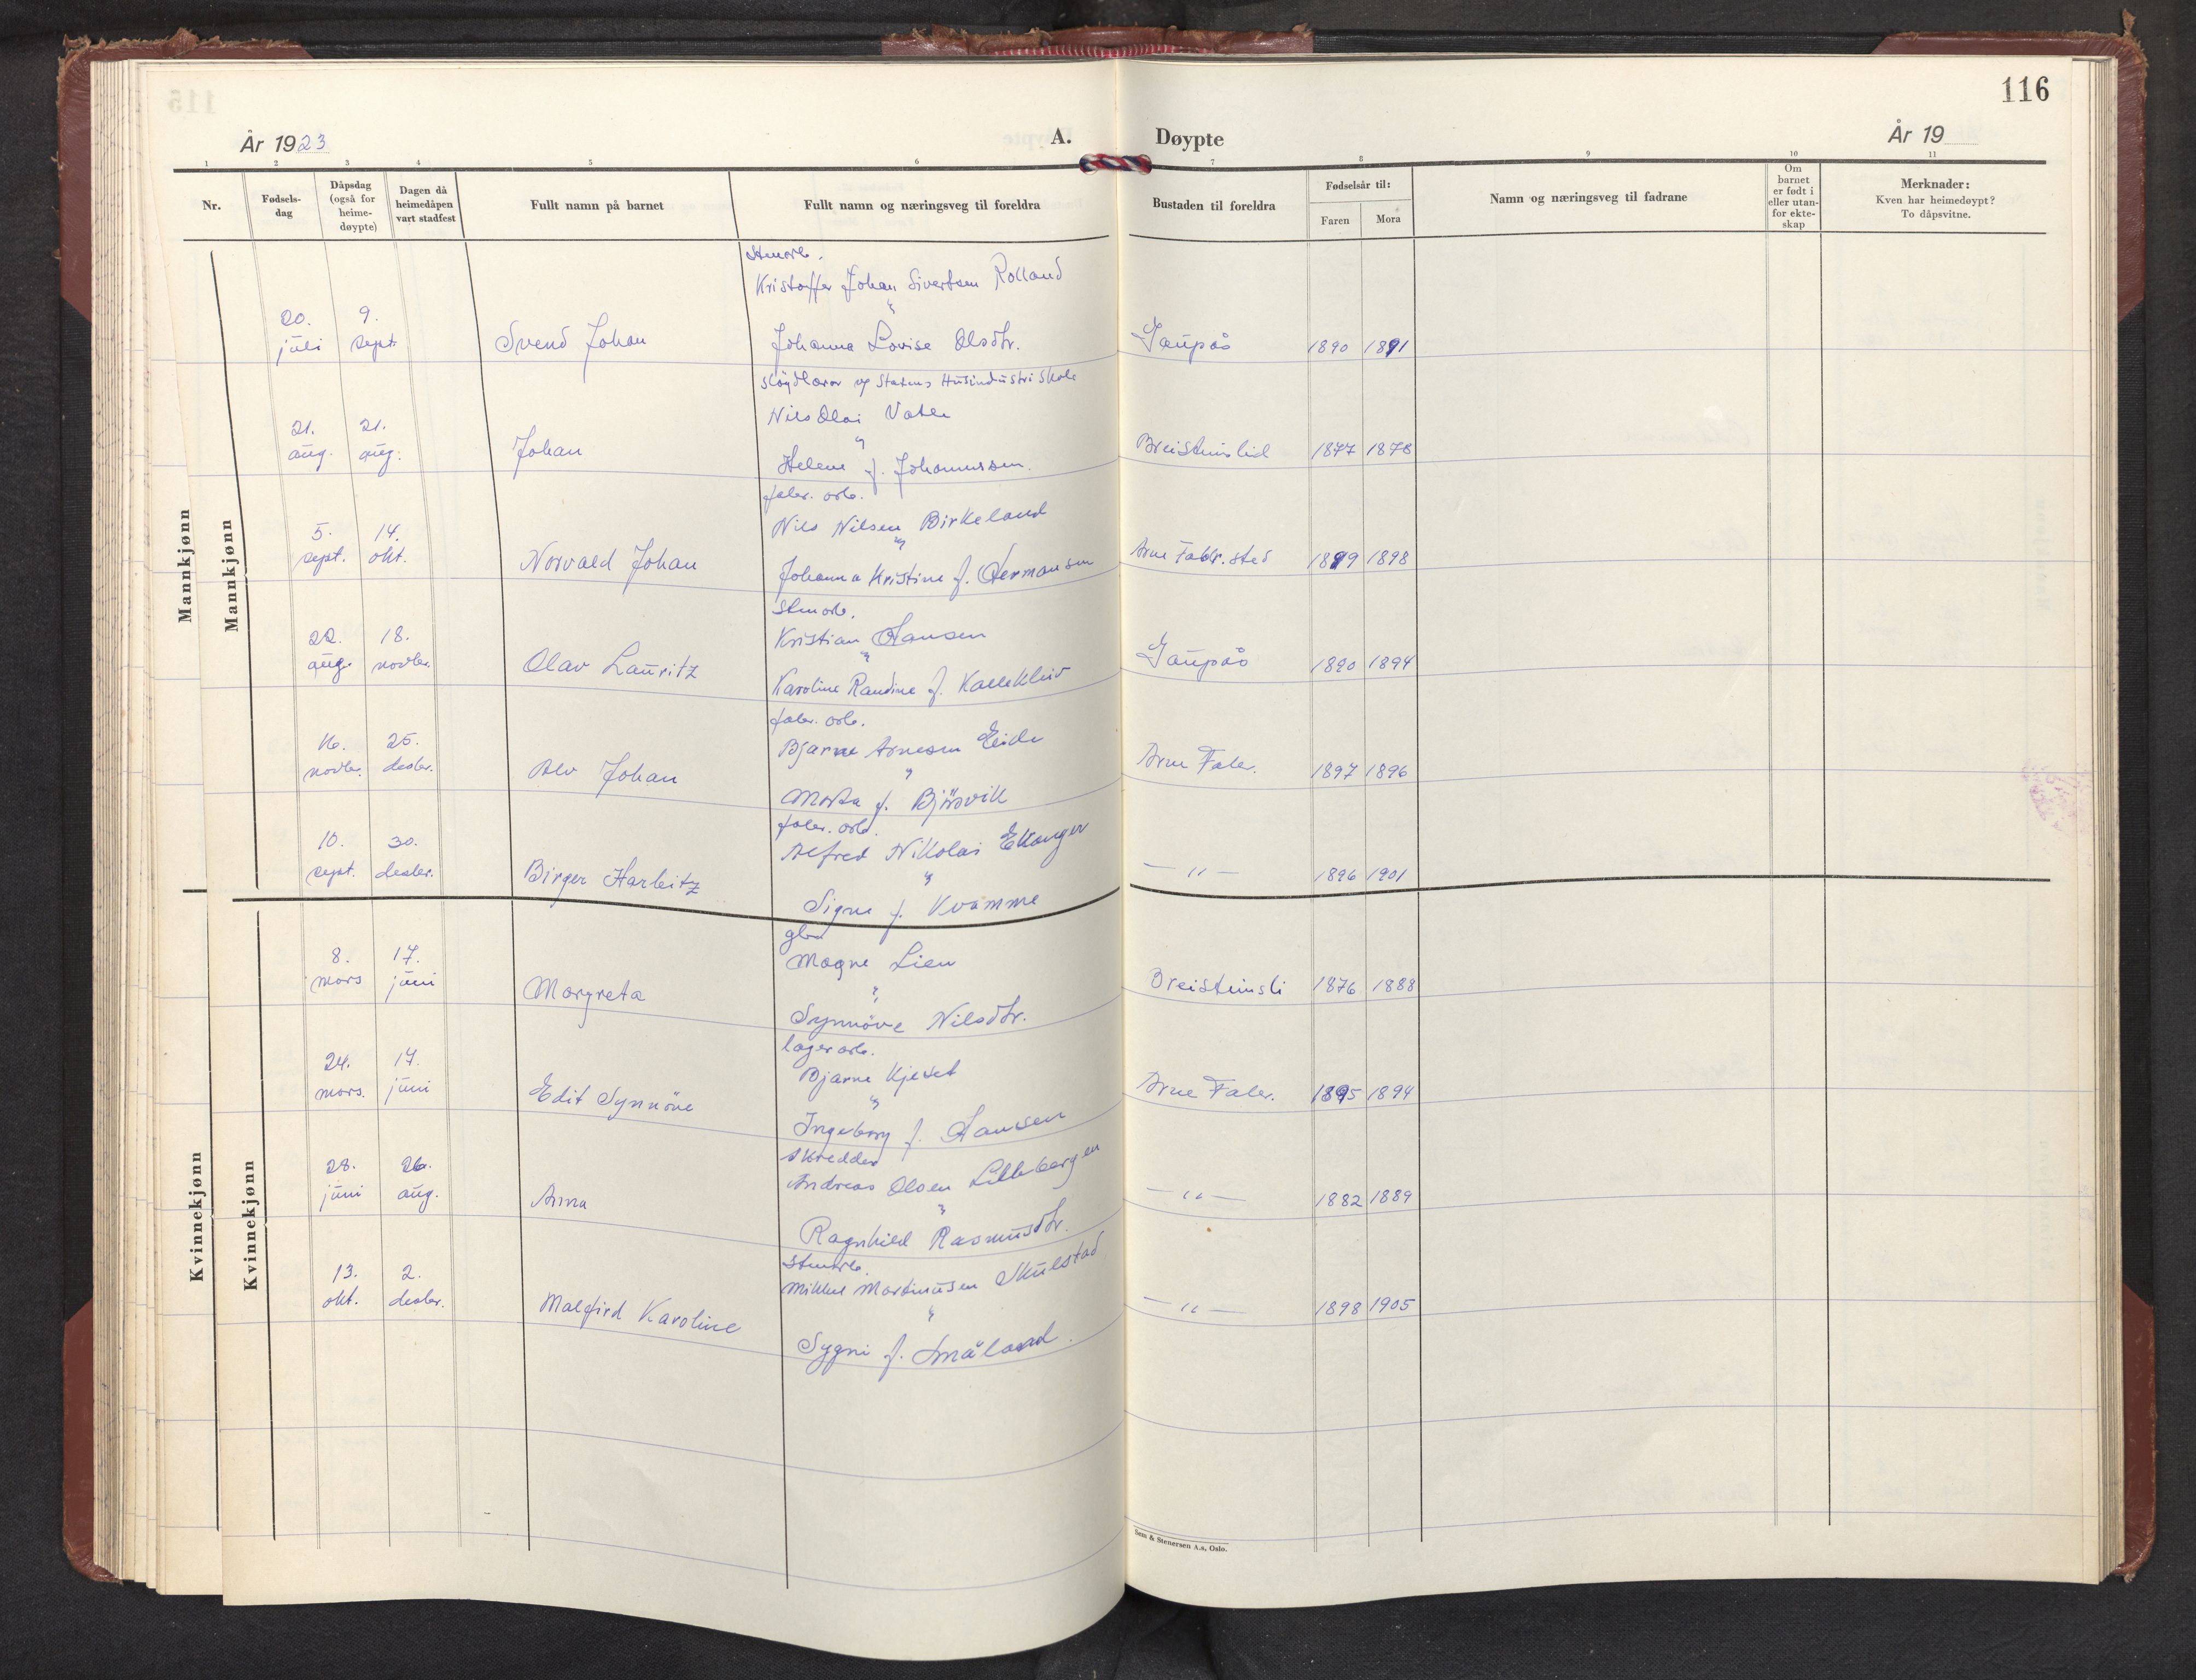 116
År 1923
A. Døypte
År 19
1 2 3 4 5 6 7 8 9 10 11
Nr.
Fødsels-
dag
Dåpsdag
(også for
heime-
døypte)
Dagen då
heimedåpen
vart stadfest
Fullt namn på barnet
Fullt namn og næringsveg til foreldra
Bustaden til foreldra
Fødselsår til:
Faren Mora
Namn og næringsveg til fadrane
Om
barnet
er født i
eller utan-
for ekte-
skap
Merknader:
Kven har heimedøypt?
To dåpsvitne.
Mannkjønn
Mannkjønn
Stenarb.
Kristoffer Johan Sivertsen Rolland
20. juli 9. sept. Svend Johan Johanna Lovise Olsdtr. Gaupås 1890 1891
sløydlærer og Statens Husindustriskole
Nils Olai Vatle
21. aug. 21. aug. Johan Helene f. Johannessen. Breisteinslid 1877 1878
fabr. arb.
Nils Nilsen Birkeland
5. sept. 14. okt. Norvald Johan Johanna Kristine f. Hermansen Arne Fabr. sted 1899 1898
Stenarb.
Kristian Hansen
22. aug. 18. novbr. Olav Lauritz Karoline Randine f. Kallekleiv Gaupås 1890 1894
fabr. arb.
Bjarne Arnesen Eide
16. novbr. 25. desbr. Alv Johan Marta f. Bjørsvik Arne Fabr. 1897 1896
fabr. arb.
Alfred Nikolai Ekanger
10. sept. 30. desbr. Birger Harbitz Signe f. Kvamme — " — 1896 1901
Kvinnekjønn
Kvinnekjønn
gbr.
Magne Lien
8. mars 17. juni Margreta Synnöve Nilsdtr. Breisteinsli 1876 1888
lagerarb.
Bjarne Kjeset
24. mars. 17. juni Edit Synnöve Ingeborg f. Hansen Arne Fabr. 1895 1894
skredder
Andreas Olsen Lillebergen
28. juni 26. aug. Anna Ragnhild Rasmusdtr. — " — 1882 1889
Stenarb.
Mikkel Martinusen Skulstad
13. okt. 2. desbr. Malfrid Karoline Sygni f. Småland. — " — 1898 1905
Sem & Stenersen A.s, Oslo.